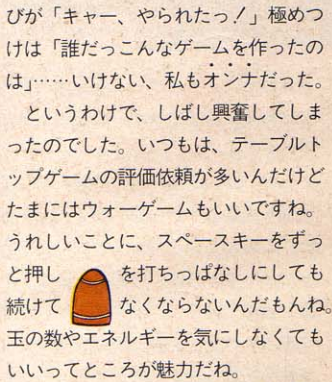 びが「キャー、やられたっ！」極めつ
けは「誰だっこんなゲームを作ったの
は」……いけない、私もオンナだった。
　というわけで、しばし興奮してしま
ったのでした。いつもは、テーブルト
ップゲームの評価依頼が多いんだけど
たまにはウォーゲームもいいですね。
うれしいことに、スペースキーをずっ
と押し　　を打ちっぱなしにしても
続けて　　なくならないんだもんね。
玉の数やエネルギーを気にしなくても
いいってところが魅力だね。